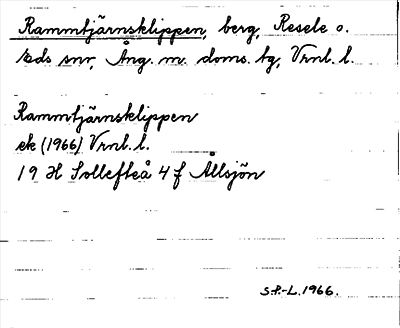 Rammtjärnsklippen, berg, Resele o.
Eds snr, Ång. m. doms. tg, Vrnl. l.
Rammtjärnsklippen
ek (1966) Vrnl. l.
19 H Sollefteå 4 f Ållsjön
S.P.-L. 1966.